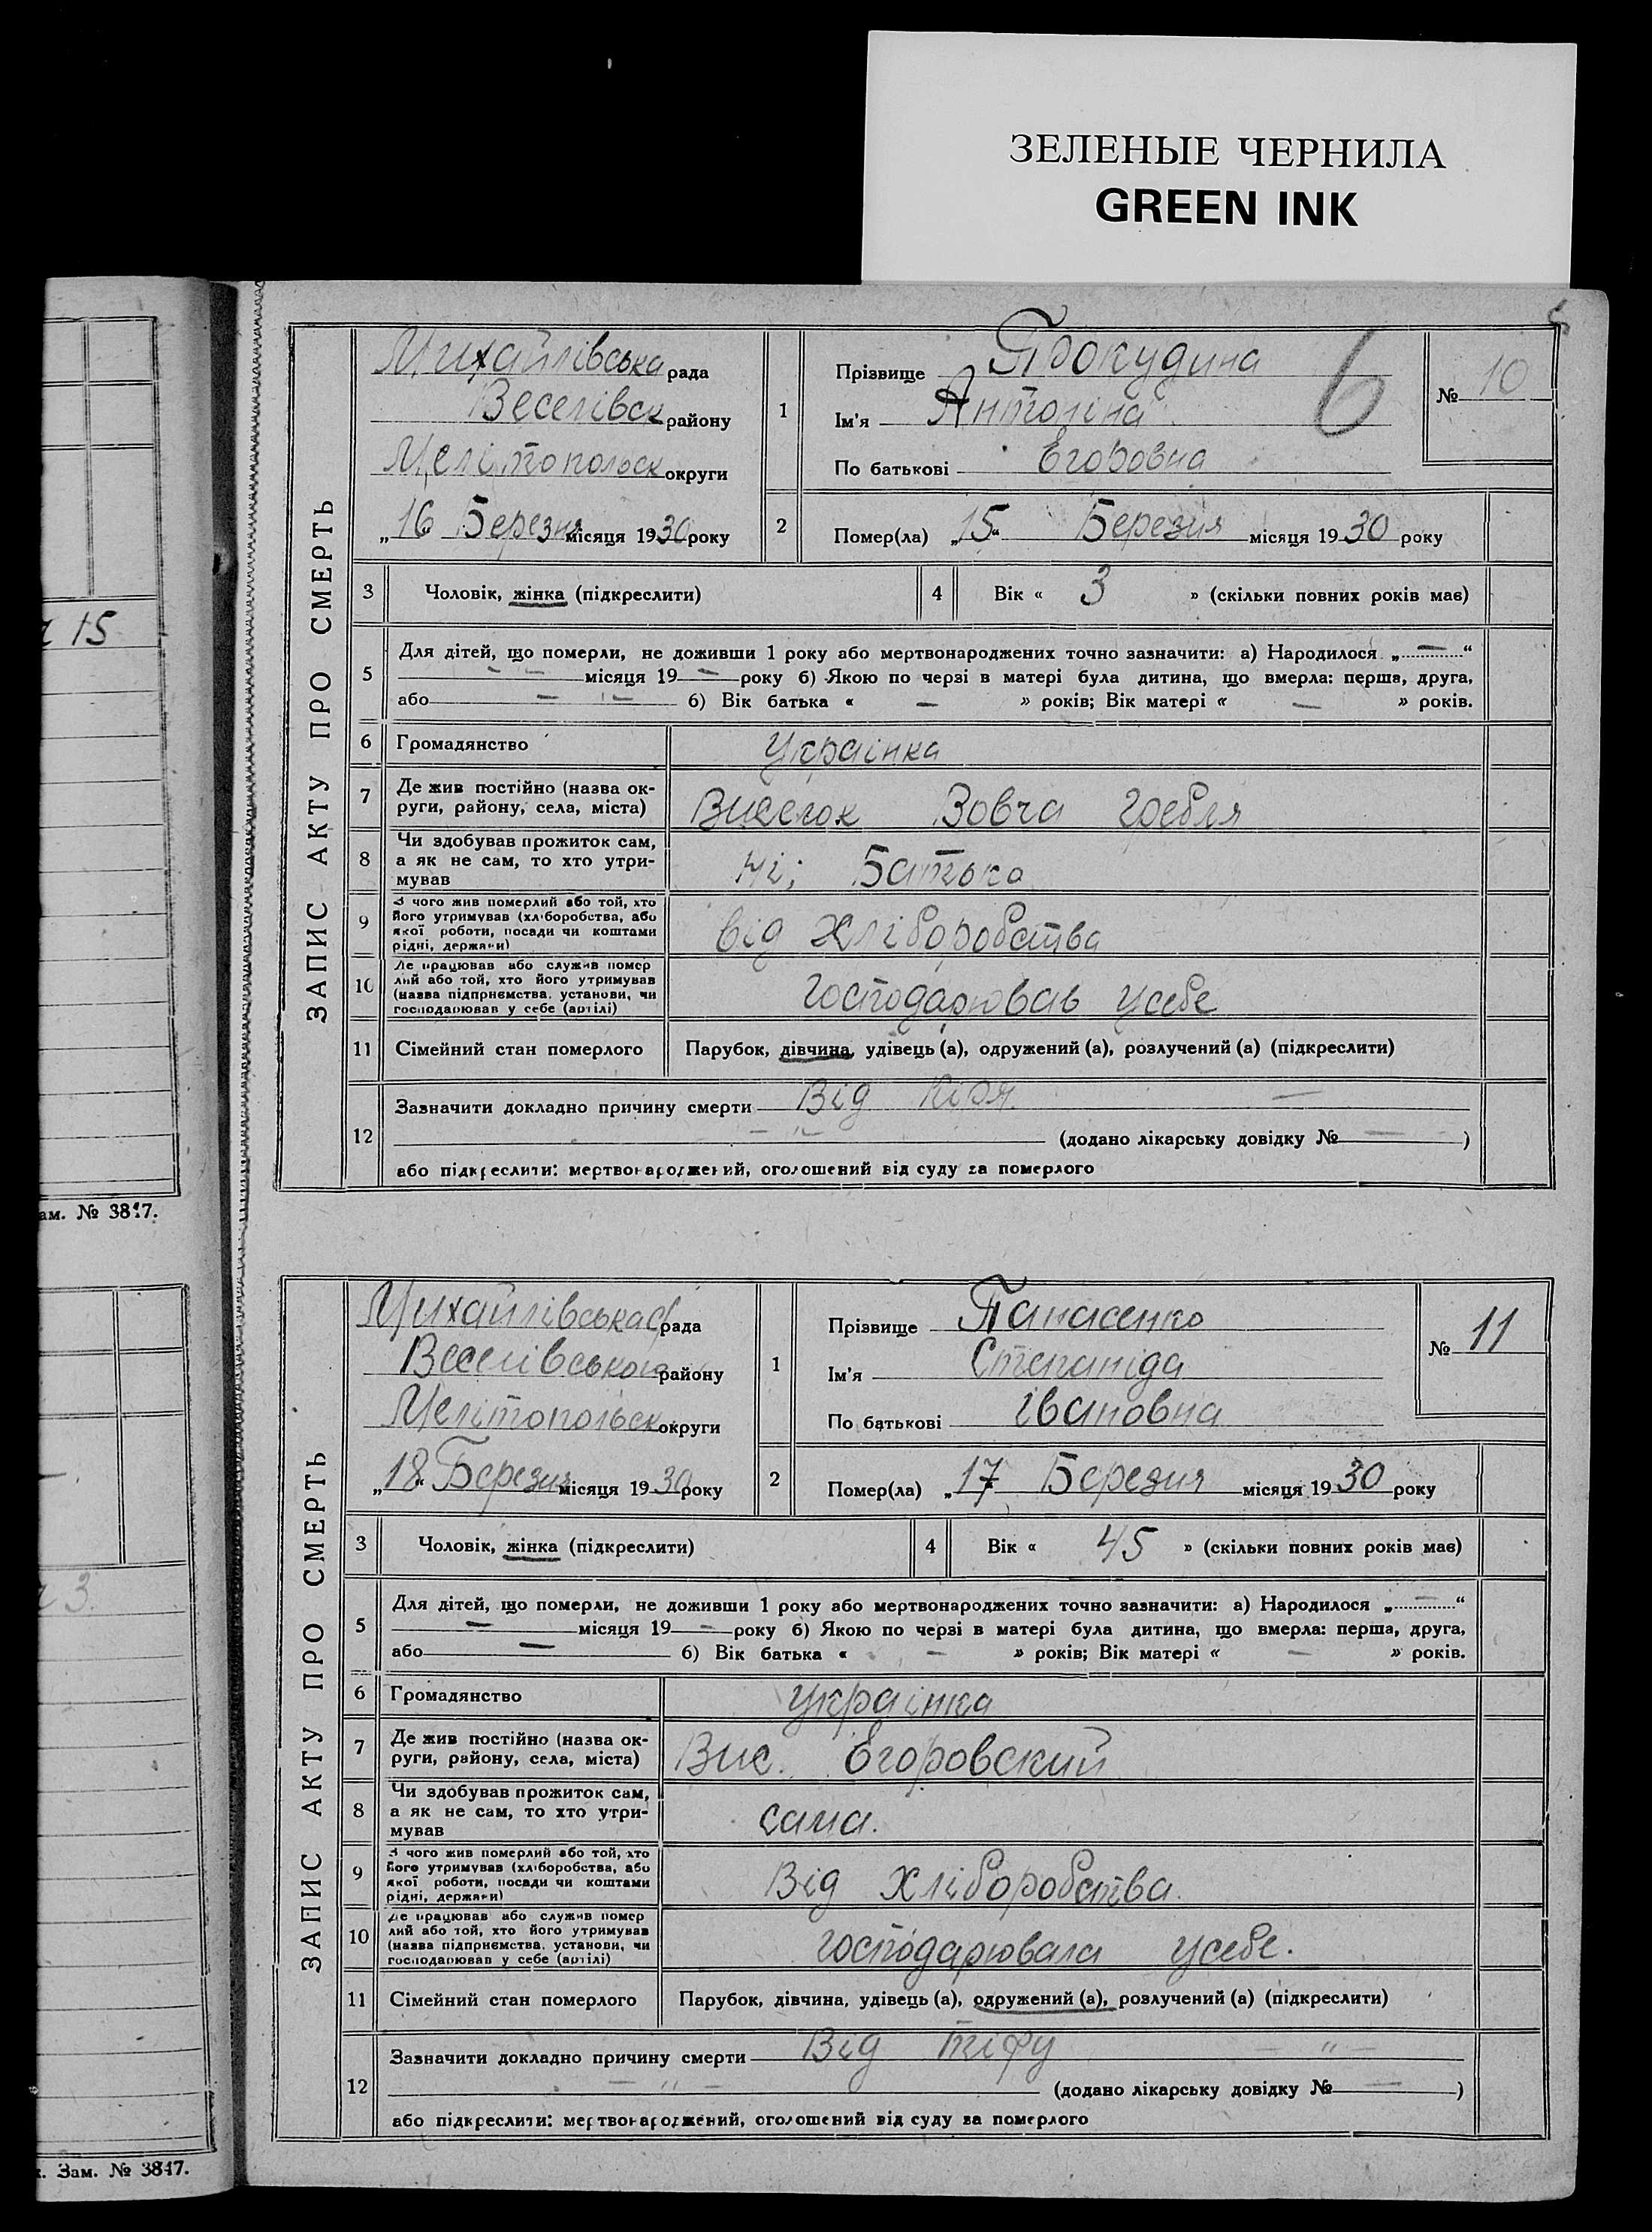 ЗЕЛЕНЫЕ ЧЕРНИЛА
GREEN INK
6
15
ам. № 3817.
3
. Зам. № 3817.
ЗАПИС АКТУ ПРО СМЕРТЬ
Михайлівська рада
Веселівськ району
Мелітопольск округи
„16 Березня місяця 1930 року
1
Прізвище Прокудина
Ім'я Антоніна
По батькові Егоровна
№ 10
2 Помер(ла) „15“ Березня місяця 1930 року
3 Чоловік, жінка (підкреслити)
4 Вік « 3 » (скільки повних років має)
5 Для дітей, що померли, не доживши 1 року або мертвонароджених точно зазначити: а) Народилося „—“
— місяця 19— року б) Якою по черзі в матері була дитина, що вмерла: перша, друга,
або — " — б) Вік батька « — » років; Вік матері « — » років.
6 Громадянство Українка
7 Де жив постійно (назва ок-
руги, району, села, міста) Виселок Вовча Гребля
8 Чи здобував прожиток сам,
а як не сам, то хто утри-
мував Ні; Батько
9 З чого жив померлий або той, хто
його утримував (хліборобства, або
якої роботи, посади чи коштами
рідні, держави) від Хліборобства
10 Де працював або служив помер
лий або той, хто його утримував
(назва підприємства, установи, чи
господарював у себе (артілі) Господарював усебе
11 Сімейний стан померлого Парубок, дівчина, удівець (а), одружений (а), розлучений (а) (підкреслити)
12 Зазначити докладно причину смерти Від Кіря —
— " — (додано лікарську довідку № — )
або підкреслити: мертвонароджений, оголошений від суду за померлого
ЗАПИС АКТУ ПРО СМЕРТЬ
Михайлівська с/рада
Веселівського району
Мелітопольск округи
„18“ Березня місяця 1930 року
1
Прізвище Панасенко
Ім'я Степаніда
По батькові Івановна
№ 11
2 Помер(ла) „17 Березня місяця 1930 року
3 Чоловік, жінка (підкреслити)
4 Вік « 45 » (скільки повних років має)
5 Для дітей, що померли, не доживши 1 року або мертвонароджених точно зазначити: а) Народилося „—“
— місяця 19— року б) Якою по черзі в матері була дитина, що вмерла: перша, друга,
або — б) Вік батька « — » років; Вік матері « — » років.
6 Громадянство Українка
7 Де жив постійно (назва ок-
руги, району, села, міста) Вис. Егоровский
8 Чи здобував прожиток сам,
а як не сам, то хто утри-
мував сама.
9 З чого жив померлий або той, хто
його утримував (хліборобства, або
якої роботи, посади чи коштами
рідні, держави) Від Хліборобства
10 Де працював або служив помер
лий або той, хто його утримував
(назва підприємства, установи, чи
господарював у себе (артілі) господарювала усебе.
11 Сімейний стан померлого Парубок, дівчина, удівець (а), одружений (а), розлучений (а) (підкреслити)
12 Зазначити докладно причину смерти Від тіфу — " —
— " — (додано лікарську довідку № — )
або підкреслити: мертвонароджений, оголошений від суду за померлого